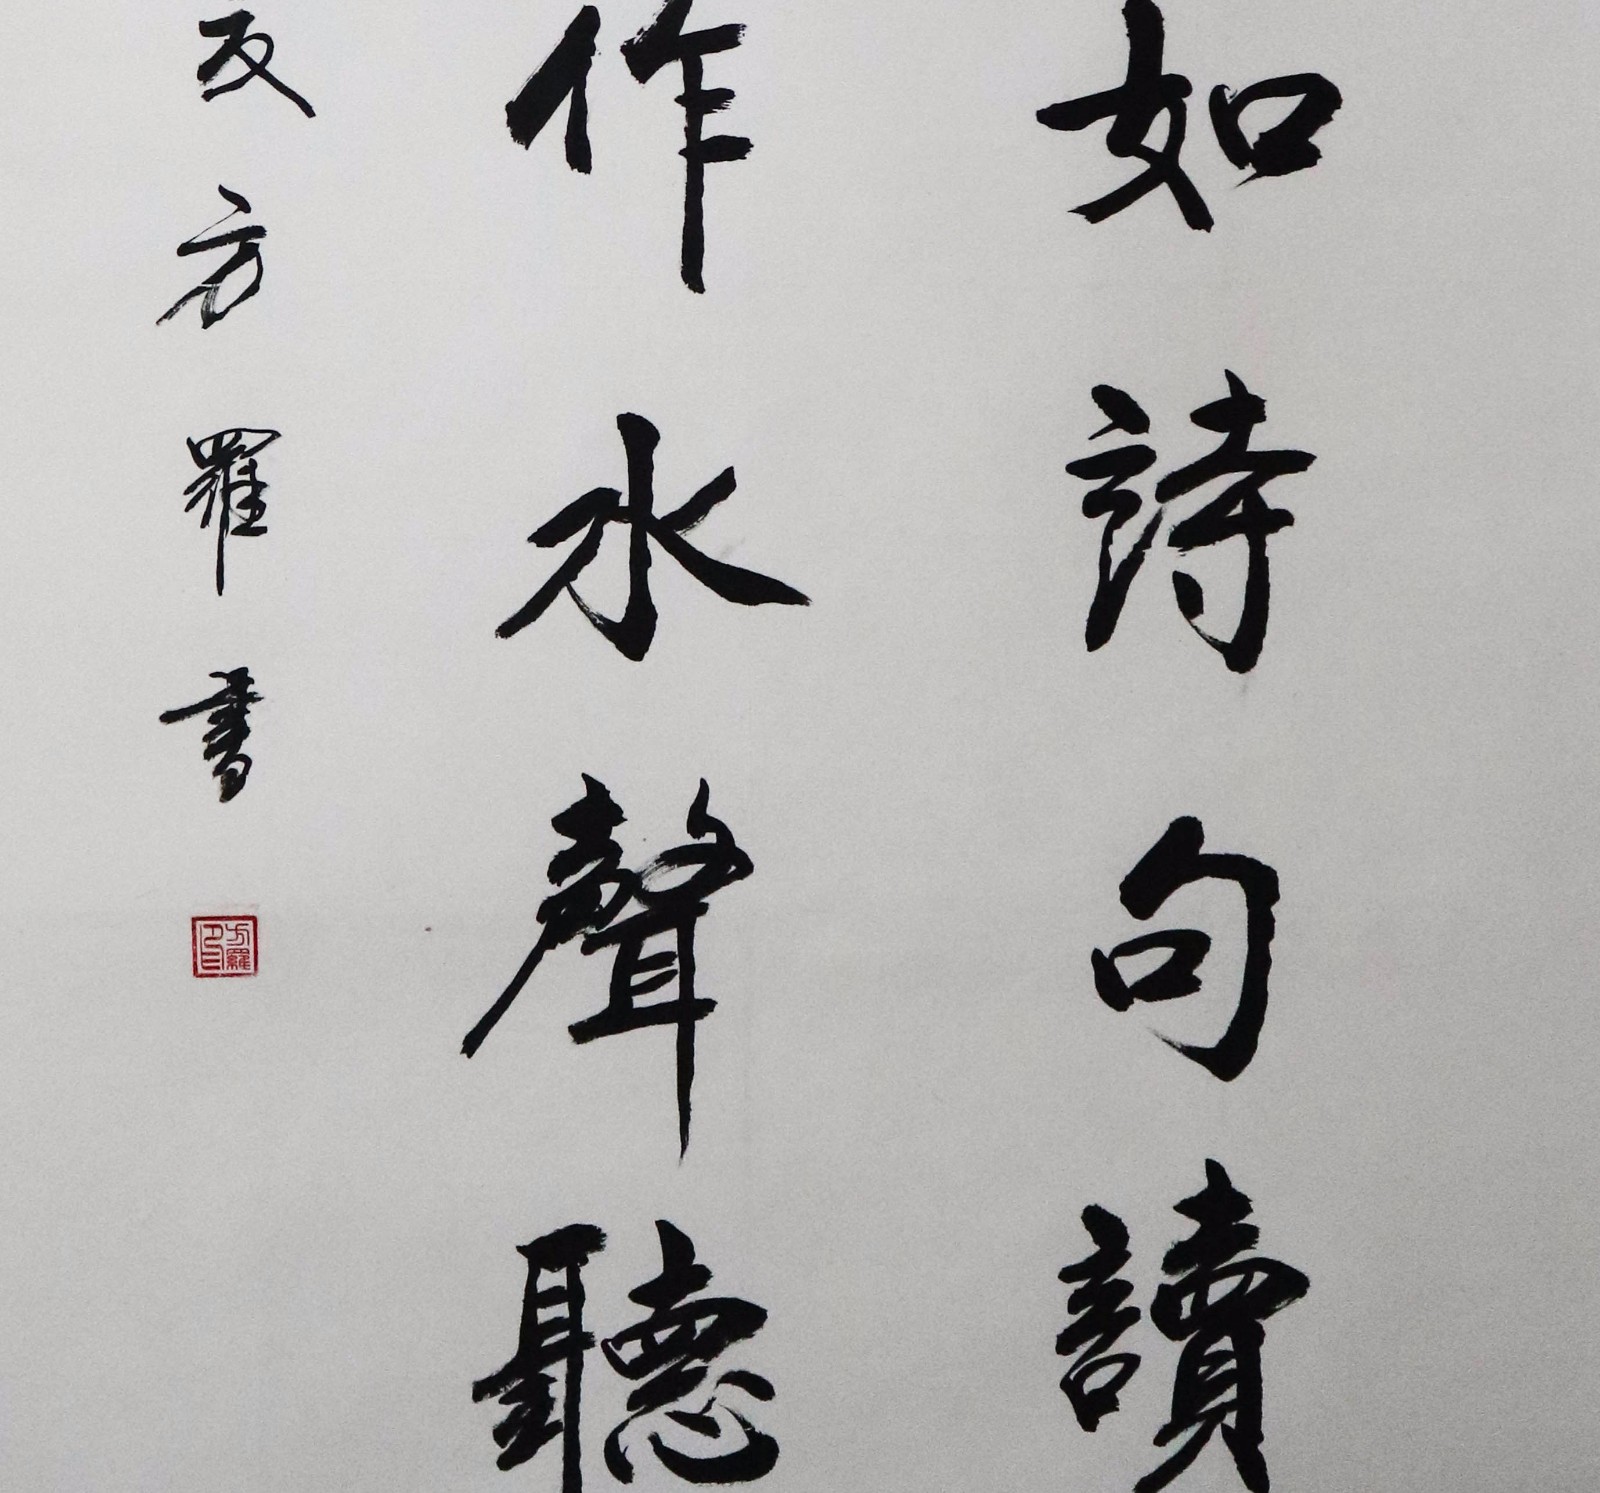 如詩句讀
作水聲聽
方羅書
方羅